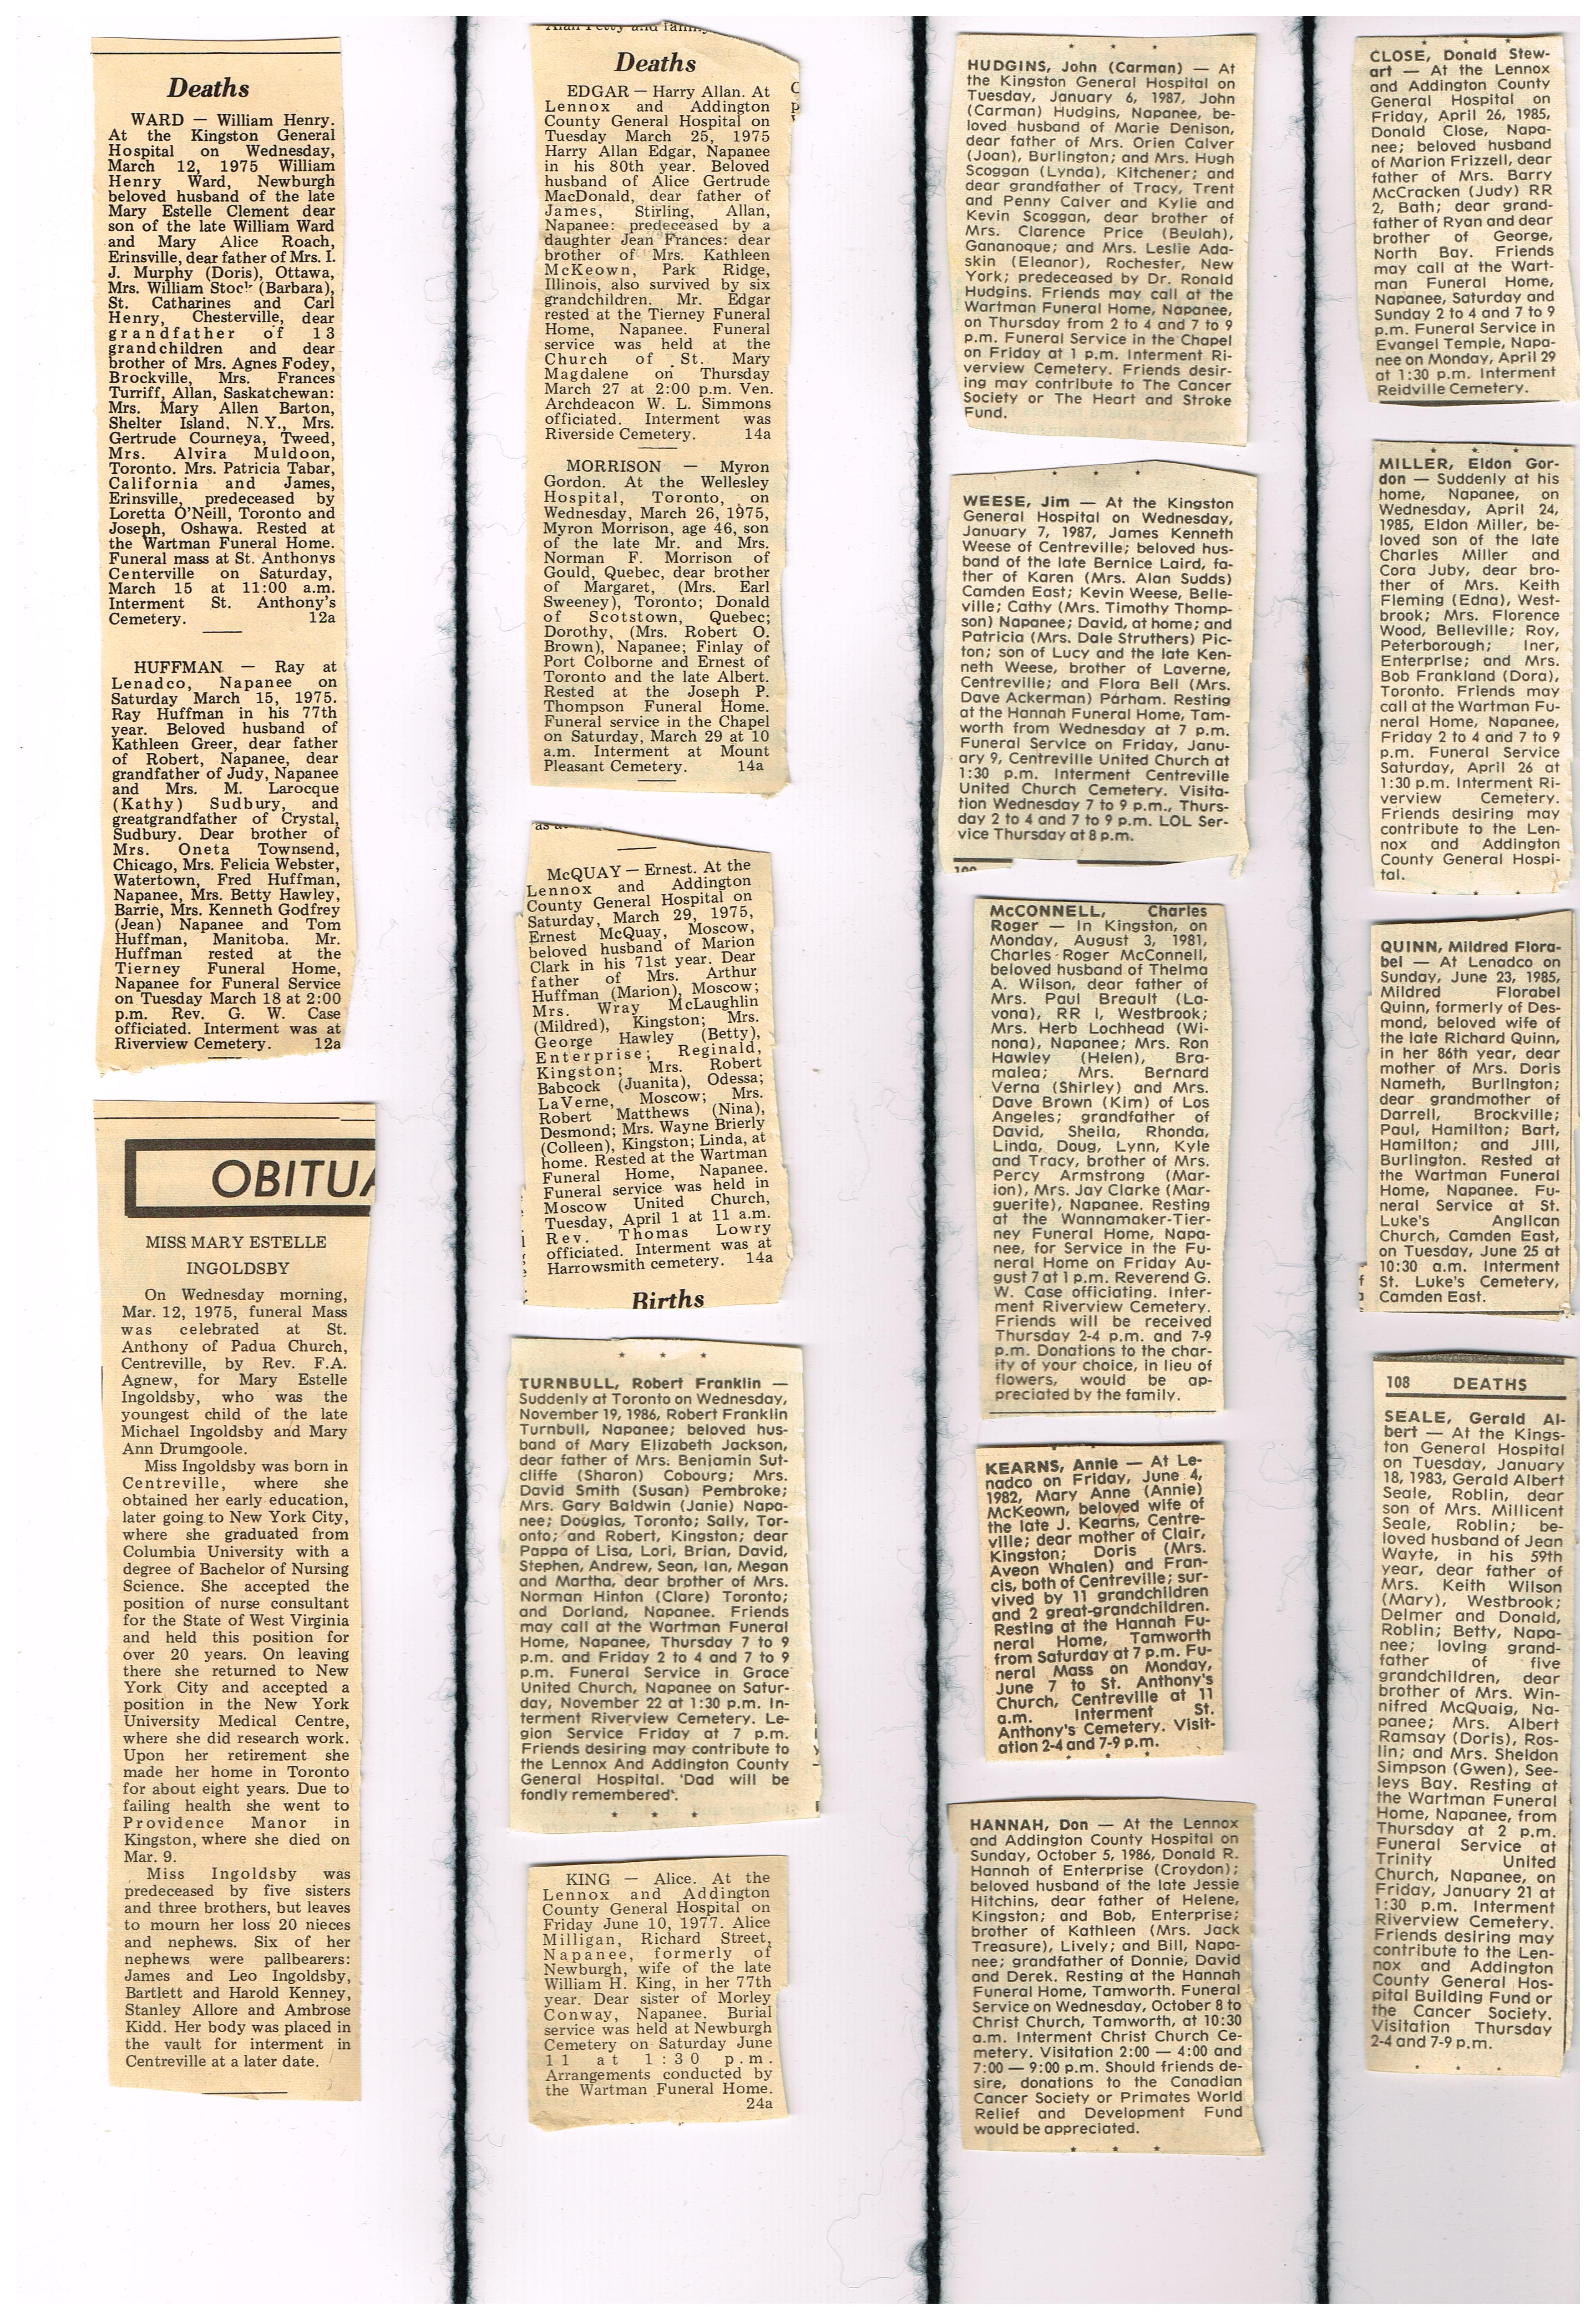 Deaths
WARD — William Henry.
At the Kingston General
Hospital on Wednesday,
March 12, 1975 William
Henry Ward, Newburgh
beloved husband of the late
Mary Estelle Clement dear
son of the late William Ward
and Mary Alice Roach,
Erinsville, dear father of Mrs. I.
J. Murphy (Doris), Ottawa,
Mrs. William Stock (Barbara),
St. Catharines and Carl
Henry, Chesterville, dear
grandfather of 13
grandchildren and dear
brother of Mrs. Agnes Fodey,
Brockville, Mrs. Frances
Turriff, Allan, Saskatchewan:
Mrs. Mary Allen Barton,
Shelter Island, N.Y., Mrs.
Gertrude Courneya, Tweed,
Mrs. Alvira Muldoon,
Toronto. Mrs. Patricia Tabar,
California and James,
Erinsville, predeceased by
Loretta O'Neill, Toronto and
Joseph, Oshawa. Rested at
the Wartman Funeral Home.
Funeral mass at St. Anthonys
Centerville on Saturday,
March 15 at 11:00 a.m.
Interment St. Anthony's
Cemetery. 12a
HUFFMAN — Ray at
Lenadco, Napanee on
Saturday March 15, 1975.
Ray Huffman in his 77th
year. Beloved husband of
Kathleen Greer, dear father
of Robert, Napanee, dear
grandfather of Judy, Napanee
and Mrs. M. Larocque
(Kathy) Sudbury, and
greatgrandfather of Crystal,
Sudbury. Dear brother of
Mrs. Oneta Townsend,
Chicago, Mrs. Felicia Webster,
Watertown, Fred Huffman,
Napanee, Mrs. Betty Hawley,
Barrie, Mrs. Kenneth Godfrey
(Jean) Napanee and Tom
Huffman, Manitoba. Mr.
Huffman rested at the
Tierney Funeral Home,
Napanee for Funeral Service
on Tuesday March 18 at 2:00
p.m. Rev. G. W. Case
officiated. Interment was at
Riverview Cemetery. 12a
OBITUA
MISS MARY ESTELLE
INGOLDSBY
On Wednesday morning,
Mar. 12, 1975, funeral Mass
was celebrated at St.
Anthony of Padua Church,
Centreville, by Rev. F.A.
Agnew, for Mary Estelle
Ingoldsby, who was the
youngest child of the late
Michael Ingoldsby and Mary
Ann Drumgoole.
Miss Ingoldsby was born in
Centreville, where she
obtained her early education,
later going to New York City,
where she graduated from
Columbia University with a
degree of Bachelor of Nursing
Science. She accepted the
position of nurse consultant
for the State of West Virginia
and held this position for
over 20 years. On leaving
there she returned to New
York City and accepted a
position in the New York
University Medical Centre,
where she did research work.
Upon her retirement she
made her home in Toronto
for about eight years. Due to
failing health she went to
Providence Manor in
Kingston, where she died on
Mar. 9.
Miss Ingoldsby was
predeceased by five sisters
and three brothers, but leaves
to mourn her loss 20 nieces
and nephews. Six of her
nephews were pallbearers:
James and Leo Ingoldsby,
Bartlett and Harold Kenney,
Stanley Allore and Ambrose
Kidd. Her body was placed in
the vault for interment in
Centreville at a later date.
Deaths
EDGAR — Harry Allan. At
Lennox and Addington
County General Hospital on
Tuesday March 25, 1975
Harry Allan Edgar, Napanee
in his 80th year. Beloved
husband of Alice Gertrude
MacDonald, dear father of
James, Stirling, Allan,
Napanee: predeceased by a
daughter Jean Frances: dear
brother of Mrs. Kathleen
McKeown, Park Ridge,
Illinois, also survived by six
grandchildren. Mr. Edgar
rested at the Tierney Funeral
Home, Napanee. Funeral
service was held at the
Church of St. Mary
Magdalene on Thursday
March 27 at 2:00 p.m. Ven.
Archdeacon W. L. Simmons
officiated. Interment was
Riverside Cemetery. 14a
MORRISON — Myron
Gordon. At the Wellesley
Hospital, Toronto, on
Wednesday, March 26, 1975,
Myron Morrison, age 46, son
of the late Mr. and Mrs.
Norman F. Morrison of
Gould, Quebec, dear brother
of Margaret, (Mrs. Earl
Sweeney), Toronto; Donald
of Scotstown, Quebec;
Dorothy, (Mrs. Robert O.
Brown), Napanee; Finlay of
Port Colborne and Ernest of
Toronto and the late Albert.
Rested at the Joseph P.
Thompson Funeral Home.
Funeral service in the Chapel
on Saturday, March 29 at 10
a.m. Interment at Mount
Pleasant Cemetery. 14a
McQUAY — Ernest. At the
Lennox and Addington
County General Hospital on
Saturday, March 29, 1975,
Ernest McQuay, Moscow,
beloved husband of Marion
Clark in his 71st year. Dear
father of Mrs. Arthur
Huffman (Marion), Moscow;
Mrs. Wray McLaughlin
(Mildred), Kingston; Mrs.
George Hawley (Betty),
Enterprise; Reginald,
Kingston; Mrs. Robert
Babcock (Juanita), Odessa;
LaVerne, Moscow; Mrs.
Robert Matthews (Nina),
Desmond; Mrs. Wayne Brierly
(Colleen), Kingston; Linda, at
home. Rested at the Wartman
Funeral Home, Napanee.
Funeral service was held in
Moscow United Church,
Tuesday, April 1 at 11 a.m.
Rev. Thomas Lowry
officiated. Interment was at
Harrowsmith cemetery. 14a
Births
TURNBULL, Robert Franklin —
Suddenly at Toronto on Wednesday,
November 19, 1986, Robert Franklin
Turnbull, Napanee; beloved hus-
band of Mary Elizabeth Jackson,
dear father of Mrs. Benjamin Sut-
cliffe (Sharon) Cobourg; Mrs.
David Smith (Susan) Pembroke;
Mrs. Gary Baldwin (Janie) Napa-
nee; Douglas, Toronto; Sally, Tor-
onto; and Robert, Kingston; dear
Pappa of Lisa, Lori, Brian, David,
Stephen, Andrew, Sean, Ian, Megan
and Martha, dear brother of Mrs.
Norman Hinton (Clare) Toronto;
and Dorland, Napanee. Friends
may call at the Wartman Funeral
Home, Napanee, Thursday 7 to 9
p.m. and Friday 2 to 4 and 7 to 9
p.m. Funeral Service in Grace
United Church, Napanee on Satur-
day, November 22 at 1:30 p.m. In-
terment Riverview Cemetery. Le-
gion Service Friday at 7 p.m.
Friends desiring may contribute to
the Lennox And Addington County
General Hospital. 'Dad will be
fondly remembered'.
KING — Alice. At the
Lennox and Addington
County General Hospital on
Friday June 10, 1977. Alice
Milligan, Richard Street,
Napanee, formerly of
Newburgh, wife of the late
William H. King, in her 77th
year. Dear sister of Morley
Conway, Napanee. Burial
service was held at Newburgh
Cemetery on Saturday June
11 at 1:30 p.m.
Arrangements conducted by
the Wartman Funeral Home.
24a
HUDGINS, John (Carman) — At
the Kingston General Hospital on
Tuesday, January 6, 1987, John
(Carman) Hudgins, Napanee, be-
loved husband of Marie Denison,
dear father of Mrs. Orien Calver
(Joan), Burlington; and Mrs. Hugh
Scoggan (Lynda), Kitchener; and
dear grandfather of Tracy, Trent
and Penny Calver and Kylie and
Kevin Scoggan, dear brother of
Mrs. Clarence Price (Beulah),
Gananoque; and Mrs. Leslie Ada-
skin (Eleanor), Rochester, New
York; predeceased by Dr. Ronald
Hudgins. Friends may call at the
Wartman Funeral Home, Napanee,
on Thursday from 2 to 4 and 7 to 9
p.m. Funeral Service in the Chapel
on Friday at 1 p.m. Interment Ri-
verview Cemetery. Friends desir-
ing may contribute to The Cancer
Society or The Heart and Stroke
Fund.
WEESE, Jim — At the Kingston
General Hospital on Wednesday,
January 7, 1987, James Kenneth
Weese of Centreville; beloved hus-
band of the late Bernice Laird, fa-
ther of Karen (Mrs. Alan Sudds)
Camden East; Kevin Weese, Belle-
ville; Cathy (Mrs. Timothy Thomp-
son) Napanee; David, at home; and
Patricia (Mrs. Dale Struthers) Pic-
ton; son of Lucy and the late Ken-
neth Weese, brother of Laverne,
Centreville; and Flora Bell (Mrs.
Dave Ackerman) Parham. Resting
at the Hannah Funeral Home, Tam-
worth from Wednesday at 7 p.m.
Funeral Service on Friday, Janu-
ary 9, Centreville United Church at
1:30 p.m. Interment Centreville
United Church Cemetery. Visita-
tion Wednesday 7 to 9 p.m., Thurs-
day 2 to 4 and 7 to 9 p.m. LOL Ser-
vice Thursday at 8 p.m.
McCONNELL, Charles
Roger — In Kingston, on
Monday, August 3, 1981,
Charles Roger McConnell,
beloved husband of Thelma
A. Wilson, dear father of
Mrs. Paul Breault (La-
vona), RR 1, Westbrook;
Mrs. Herb Lochhead (Wi-
nona), Napanee; Mrs. Ron
Hawley (Helen), Bra-
malea; Mrs. Bernard
Verna (Shirley) and Mrs.
Dave Brown (Kim) of Los
Angeles; grandfather of
David, Sheila, Rhonda,
Linda, Doug, Lynn, Kyle
and Tracy, brother of Mrs.
Percy Armstrong (Mar-
ion), Mrs. Jay Clarke (Mar-
guerite), Napanee. Resting
at the Wannamaker-Tier-
ney Funeral Home, Napa-
nee, for Service in the Fu-
neral Home on Friday Au-
gust 7 at 1 p.m. Reverend G.
W. Case officiating. Inter-
ment Riverview Cemetery.
Friends will be received
Thursday 2-4 p.m. and 7-9
p.m. Donations to the char-
ity of your choice, in lieu of
flowers, would be ap-
preciated by the family.
KEARNS, Annie — At Le-
nadco on Friday, June 4,
1982, Mary Anne (Annie)
McKeown, beloved wife of
the late J. Kearns, Centre-
ville; dear mother of Clair,
Kingston; Doris (Mrs.
Aveon Whalen) and Fran-
cis, both of Centreville; sur-
vived by 11 grandchildren
and 2 great-grandchildren.
Resting at the Hannah Fu-
neral Home, Tamworth
from Saturday at 7 p.m. Fu-
neral Mass on Monday,
June 7 to St. Anthony's
Church, Centreville at 11
a.m. Interment St.
Anthony's Cemetery. Visit-
ation 2-4 and 7-9 p.m.
HANNAH, Don — At the Lennox
and Addington County Hospital on
Sunday, October 5, 1986, Donald R.
Hannah of Enterprise (Croydon);
beloved husband of the late Jessie
Hitchins, dear father of Helene,
Kingston; and Bob, Enterprise;
brother of Kathleen (Mrs. Jack
Treasure), Lively; and Bill, Napa-
nee; grandfather of Donnie, David
and Derek. Resting at the Hannah
Funeral Home, Tamworth. Funeral
Service on Wednesday, October 8 to
Christ Church, Tamworth, at 10:30
a.m. Interment Christ Church Ce-
metery. Visitation 2:00 — 4:00 and
7:00 — 9:00 p.m. Should friends de-
sire, donations to the Canadian
Cancer Society or Primates World
Relief and Development Fund
would be appreciated.
CLOSE, Donald Stew-
art — At the Lennox
and Addington County
General Hospital on
Friday, April 26, 1985,
Donald Close, Napa-
nee; beloved husband
of Marion Frizzell, dear
father of Mrs. Barry
McCracken (Judy) RR
2, Bath; dear grand-
father of Ryan and dear
brother of George,
North Bay. Friends
may call at the Wart-
man Funeral Home,
Napanee, Saturday and
Sunday 2 to 4 and 7 to 9
p.m. Funeral Service in
Evangel Temple, Napa-
nee on Monday, April 29
at 1:30 p.m. Interment
Reidville Cemetery.
MILLER, Eldon Gor-
don — Suddenly at his
home, Napanee, on
Wednesday, April 24,
1985, Eldon Miller, be-
loved son of the late
Charles Miller and
Cora Juby, dear bro-
ther of Mrs. Keith
Fleming (Edna), West-
brook; Mrs. Florence
Wood, Belleville; Roy,
Peterborough; Iner,
Enterprise; and Mrs.
Bob Frankland (Dora),
Toronto. Friends may
call at the Wartman Fu-
neral Home, Napanee,
Friday 2 to 4 and 7 to 9
p.m. Funeral Service
Saturday, April 26 at
1:30 p.m. Interment Ri-
verview Cemetery.
Friends desiring may
contribute to the Len-
nox and Addington
County General Hospi-
tal.
QUINN, Mildred Flora-
bel — At Lenadco on
Sunday, June 23, 1985,
Mildred Florabel
Quinn, formerly of Des-
mond, beloved wife of
the late Richard Quinn,
in her 86th year, dear
mother of Mrs. Doris
Nameth, Burlington;
dear grandmother of
Darrell, Brockville;
Paul, Hamilton; Bart,
Hamilton; and Jill,
Burlington. Rested at
the Wartman Funeral
Home, Napanee. Fu-
neral Service at St.
Luke's Anglican
Church, Camden East,
on Tuesday, June 25 at
10:30 a.m. Interment
St. Luke's Cemetery,
Camden East.
108 DEATHS
SEALE, Gerald Al-
bert — At the Kings-
ton General Hospital
on Tuesday, January
18, 1983, Gerald Albert
Seale, Roblin, dear
son of Mrs. Millicent
Seale, Roblin; be-
loved husband of Jean
Wayte, in his 59th
year, dear father of
Mrs. Keith Wilson
(Mary), Westbrook;
Delmer and Donald,
Roblin; Betty, Napa-
nee; loving grand-
father of five
grandchildren, dear
brother of Mrs. Win-
nifred McQuaig, Na-
panee; Mrs. Albert
Ramsay (Doris), Ros-
lin; and Mrs. Sheldon
Simpson (Gwen), See-
leys Bay. Resting at
the Wartman Funeral
Home, Napanee, from
Thursday at 2 p.m.
Funeral Service at
Trinity United
Church, Napanee, on
Friday, January 21 at
1:30 p.m. Interment
Riverview Cemetery.
Friends desiring may
contribute to the Len-
nox and Addington
County General Hos-
pital Building Fund or
the Cancer Society.
Visitation Thursday
2-4 and 7-9 p.m.